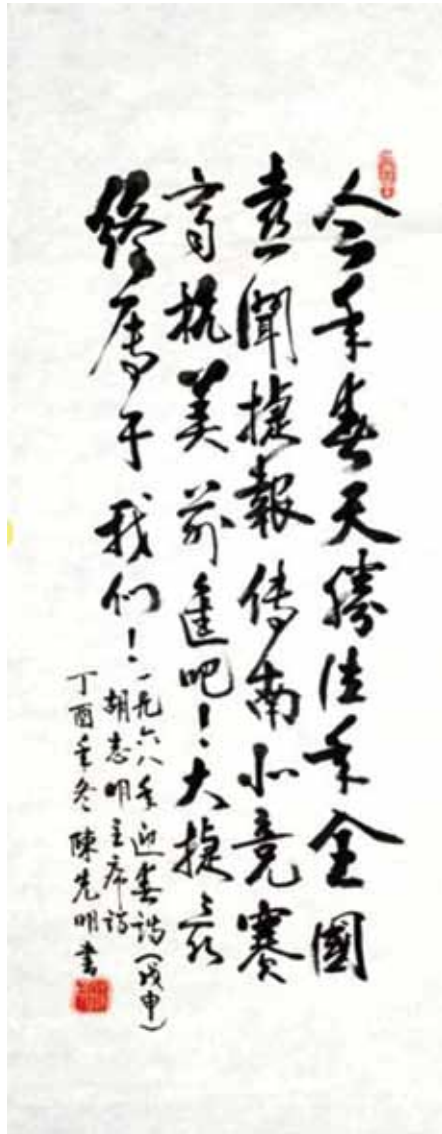 今年春天勝往年全國
喜聞捷報傳南北竞賽
齊抗美前進吧！大捷最
終屬于我们！
一九六八年迎春詩（戊申）
胡志明主席詩
丁酉年冬 陳先明書